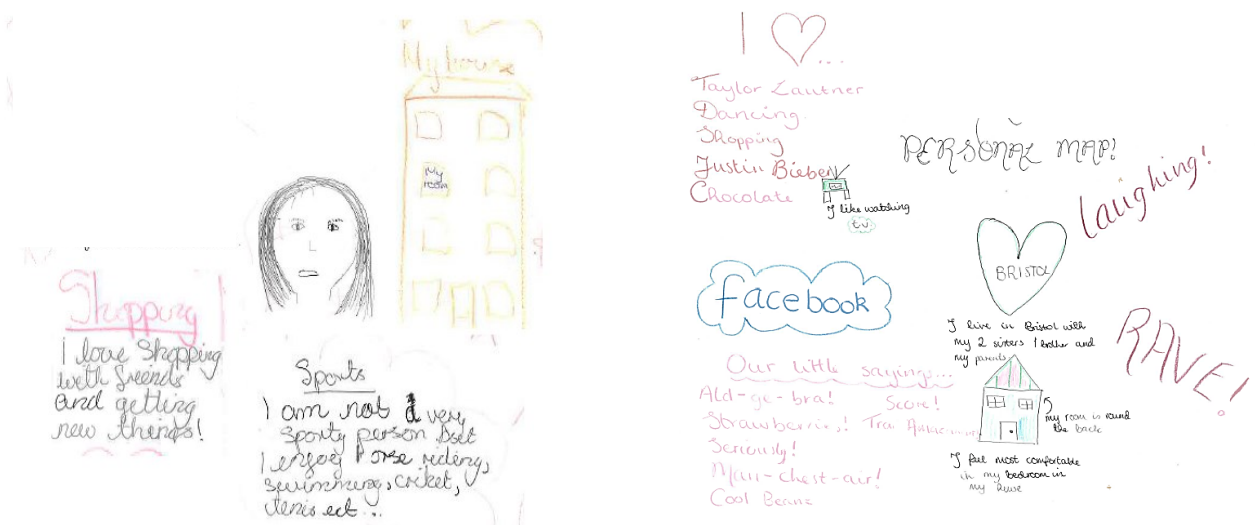 My house
My
room
Shopping
I love Shopping
with friends
and getting
new things!
Sports
I am not a very
Sporty person
I enjoy horse riding,
swimming, cricket,
tenis ect...
I ♡...
Taylor Lautner
Dancing
Shopping
Justin Bieber
Chocolate
I like watching
tv.
PERSONAL MAP!
Laughing!
BRISTOL
facebook
I live in Bristol with
my 2 sisters 1 brother and
my parents
RAVE!
Our little sayings...
Ald-ge-bra! Score!
Seriously!
Man-chest-air!
Cool Beans
my room is round
the back
I feel most comfortable
in my bedroom in
my house